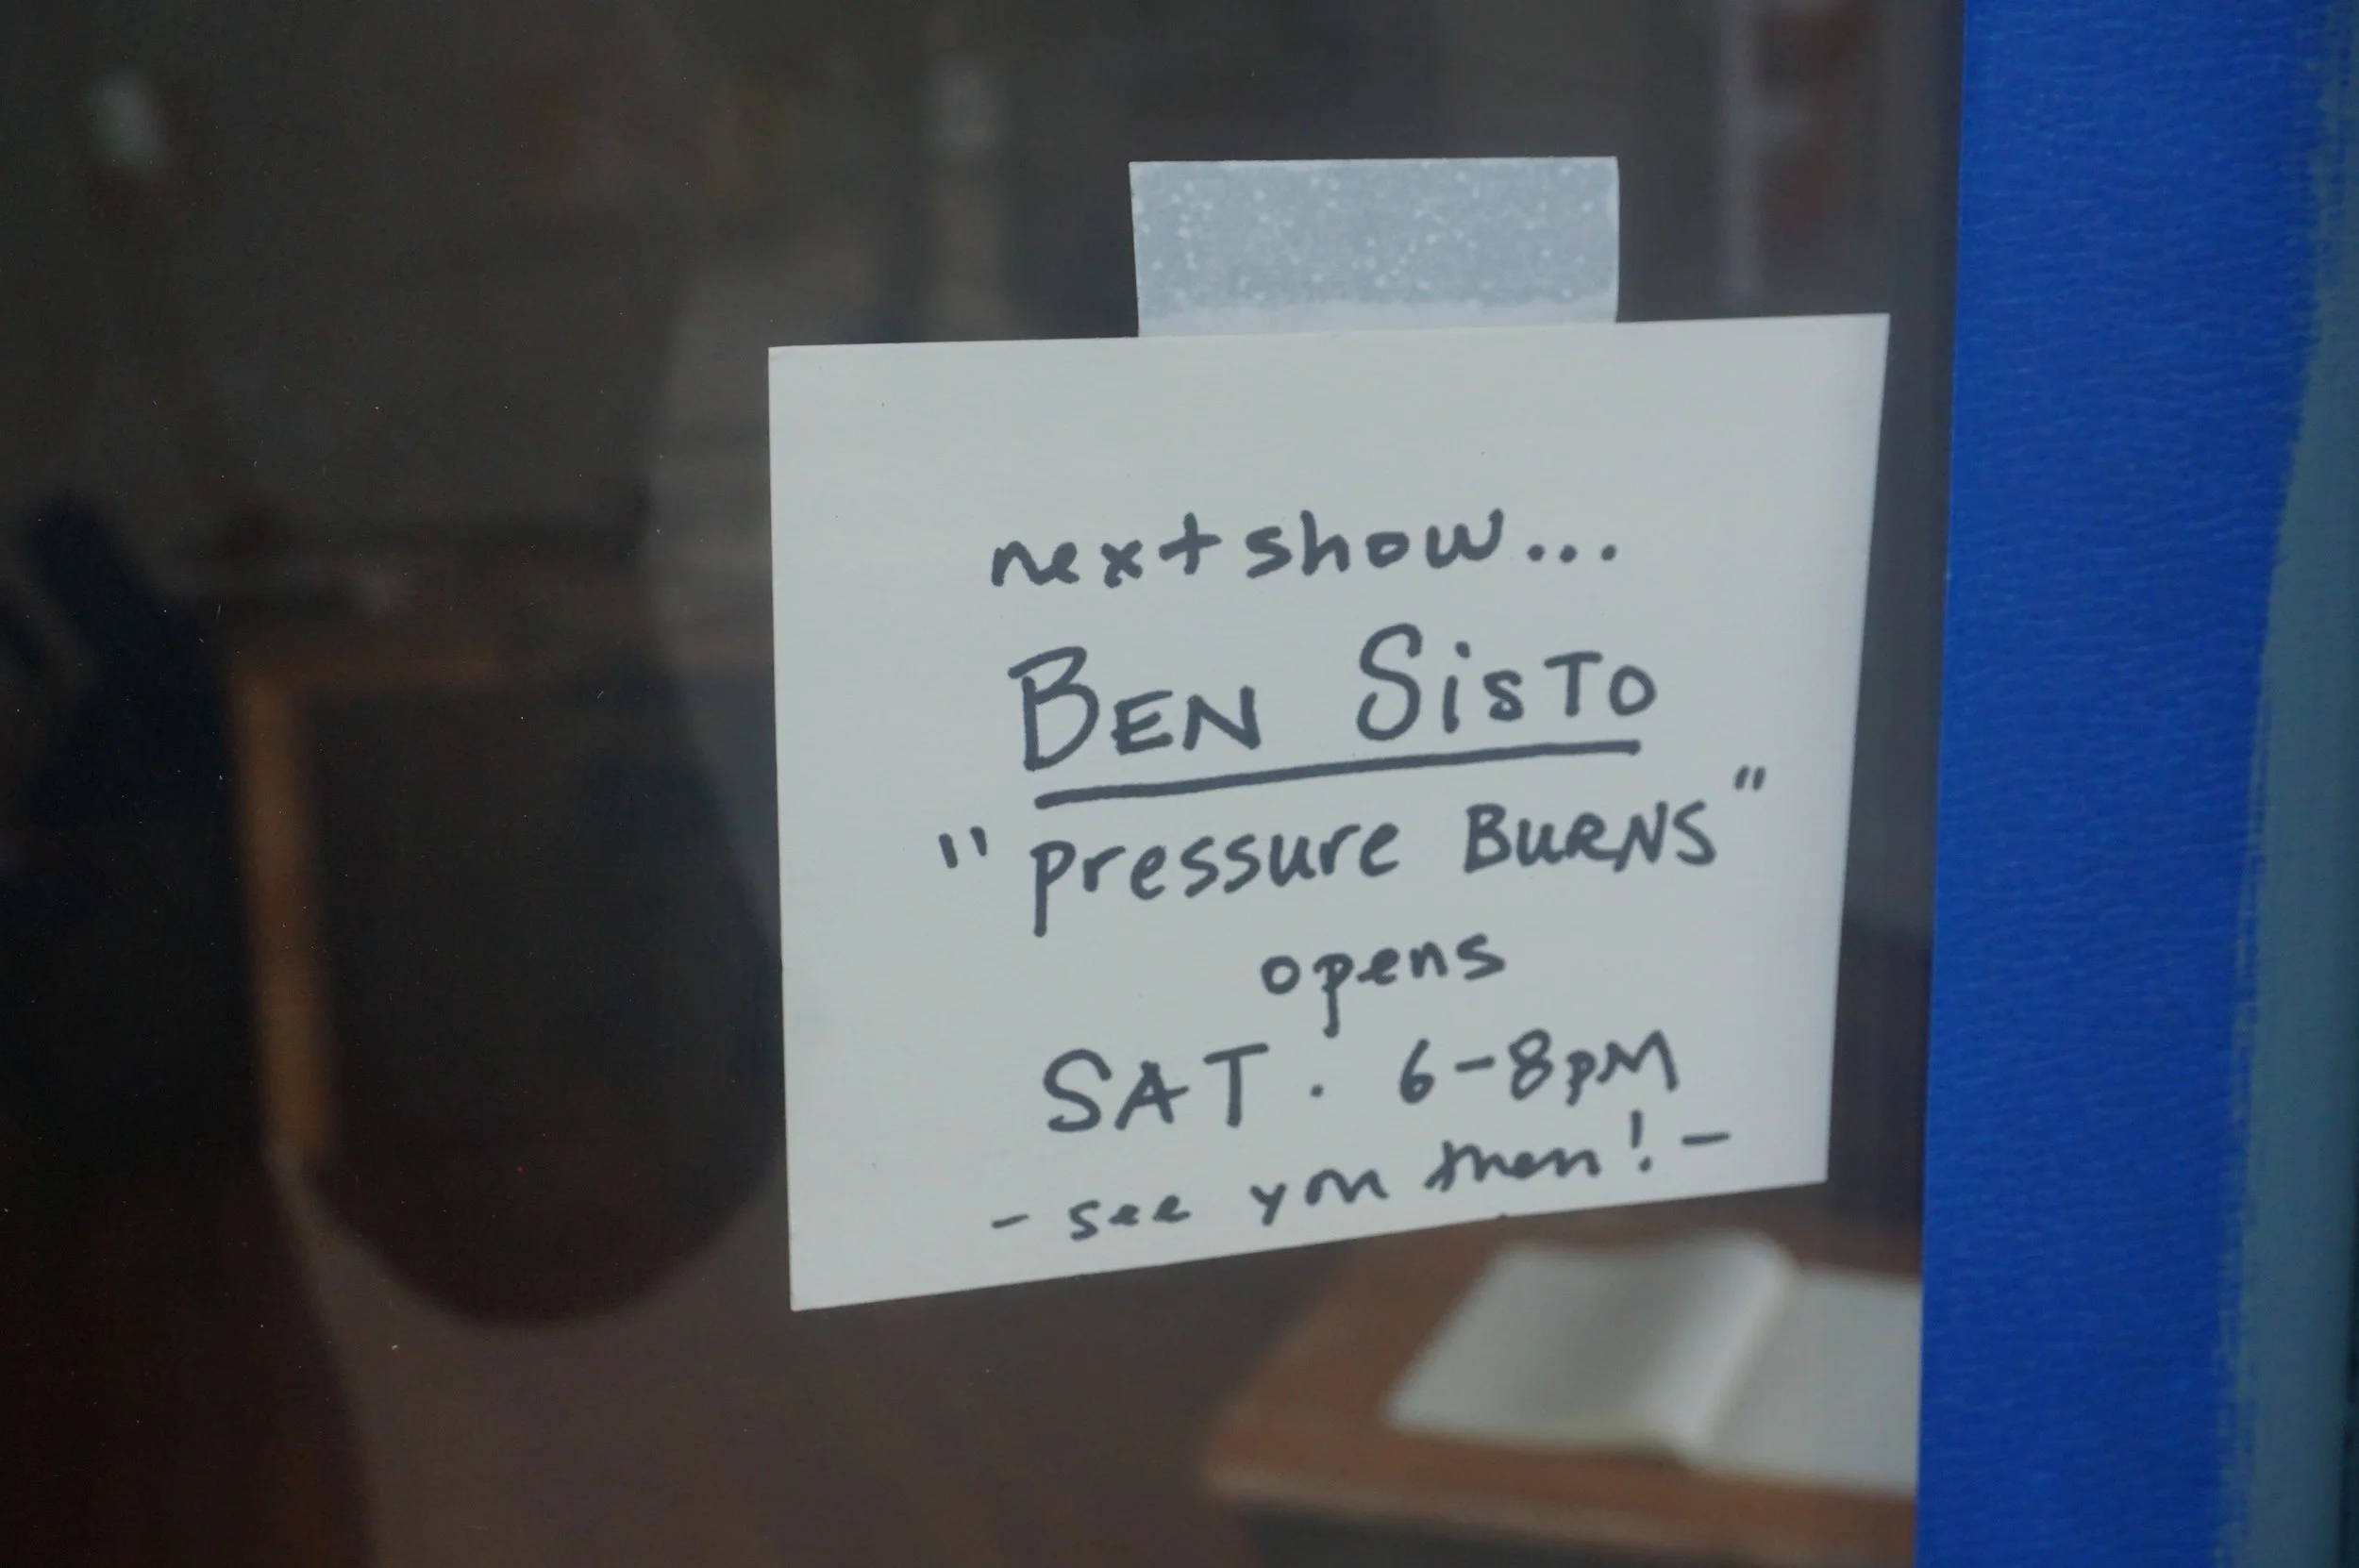 next show...
BEN SiSTO
"pressure BURNS"
opens
SAT. 6-8pM
- see you then! -